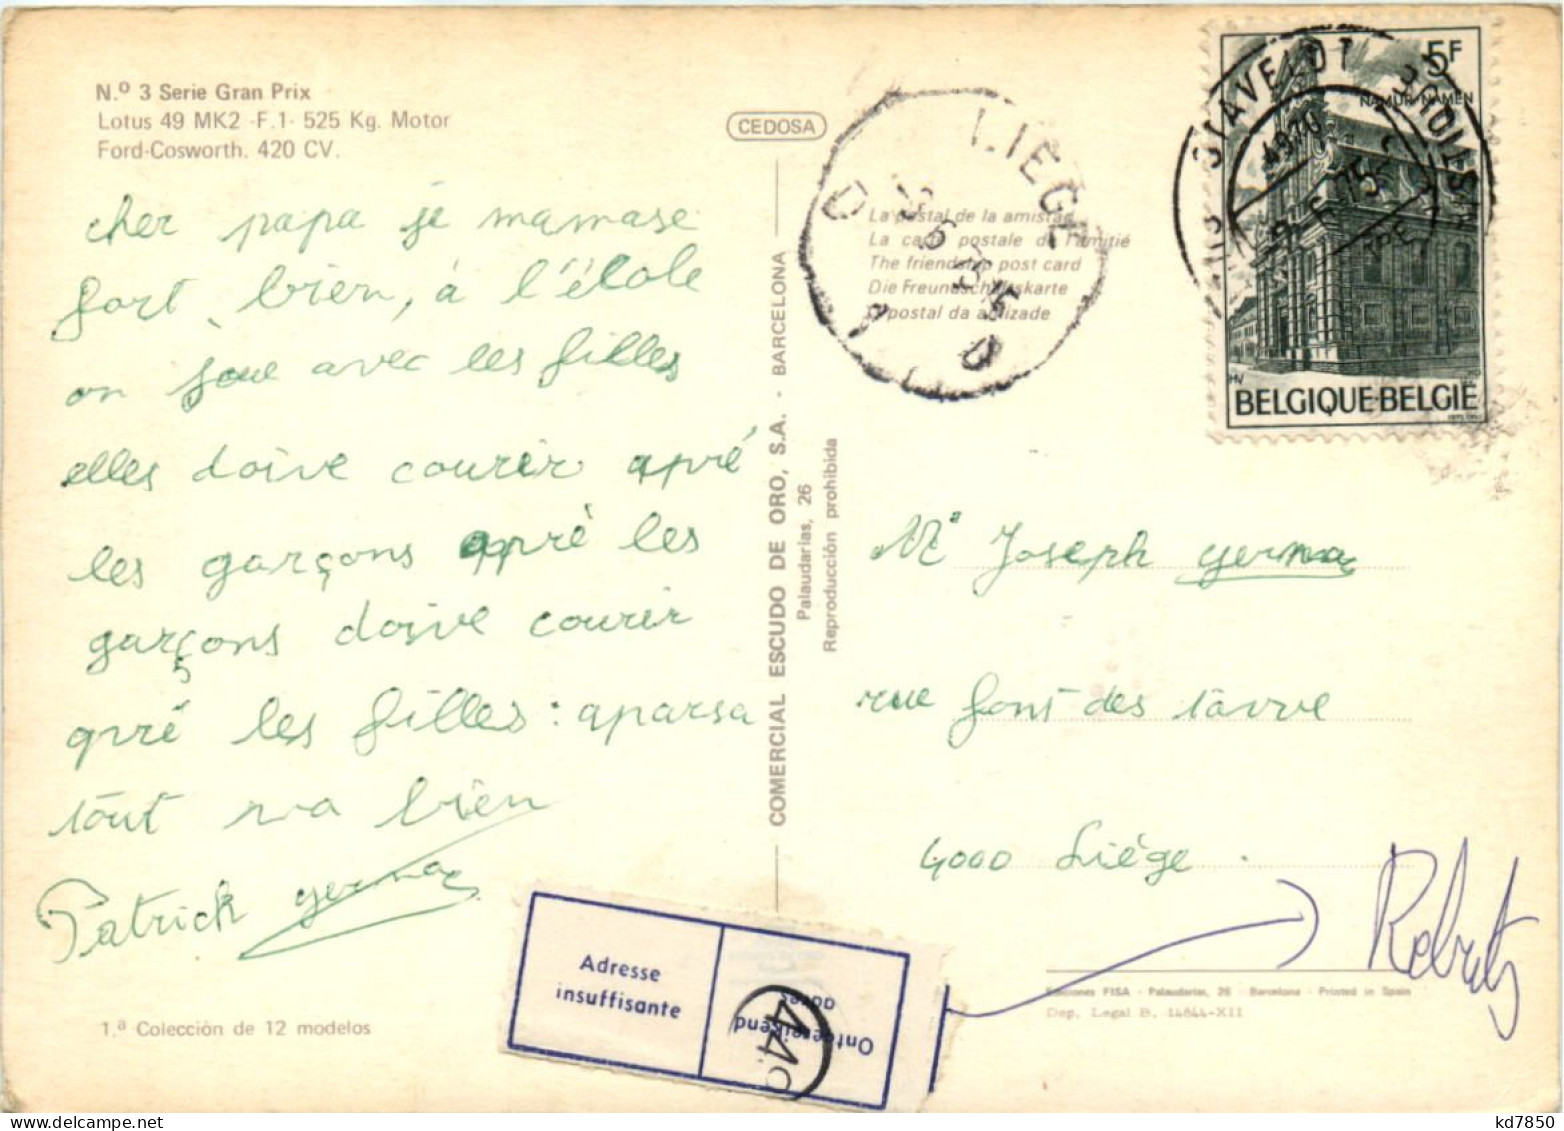 N.º 3 Serie Gran Prix
Lotus 49 MK2 -F.1- 525 Kg. Motor
Ford-Cosworth. 420 CV.
cher papa je mamase
fort bien, à l'école
on joue avec les filles
elles doive courir apré
les garçons apré les
garçons doive courir
apré les filles: aparsa
tout va bien
Patrick
1.ª Colección de 12 modelos
CEDOSA
COMERCIAL ESCUDO DE ORO, S.A. - BARCELONA
Palaudarias, 26
Reproducción prohibida
La postal de la amistad
La carte postale de l'amitié
The friendship post card
Die Freundschaftskarte
O postal da amizade
LIEGE
STAVELOT
4970
5F
NAMUR-NAMEN
BELGIQUE-BELGIE
Mr Joseph
rue font des tavve
4000 Liége
Adresse
insuffisante
Ontoereikend
adres
449
Ediciones FISA - Palaudarias, 26 - Barcelona - Printed in Spain
Dep. Legal B. 14844-XII
kd7850